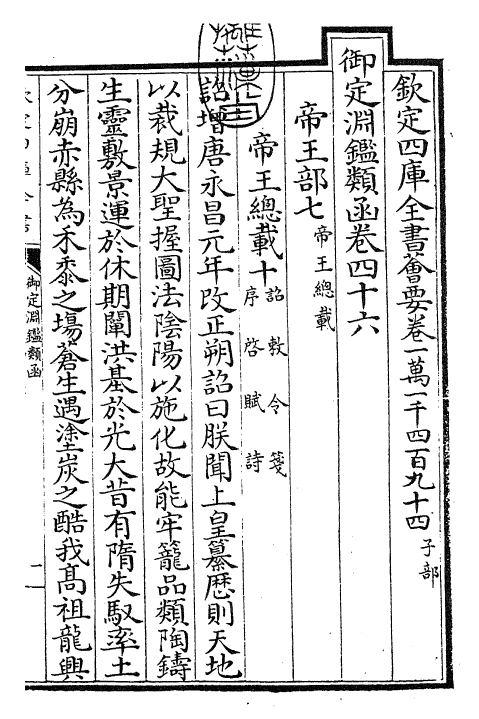 欽定四庫全書薈要卷一萬一千四百九十四 子部
御定淵鑑類函卷四十六
帝王部七 帝王總載
帝王總載十 詔 敕 令 箋
序 啓 賦 詩
詔增唐永昌元年改正朔詔曰朕聞上皇纂厯則天地
以裁規大聖握圖法陰陽以施化故能牢籠品類陶鑄
生靈敷景運於休期闡洪基於光大昔有隋失馭率土
分崩赤縣為禾黍之場蒼生遇塗炭之酷我髙祖龍興
御定淵鑑類函